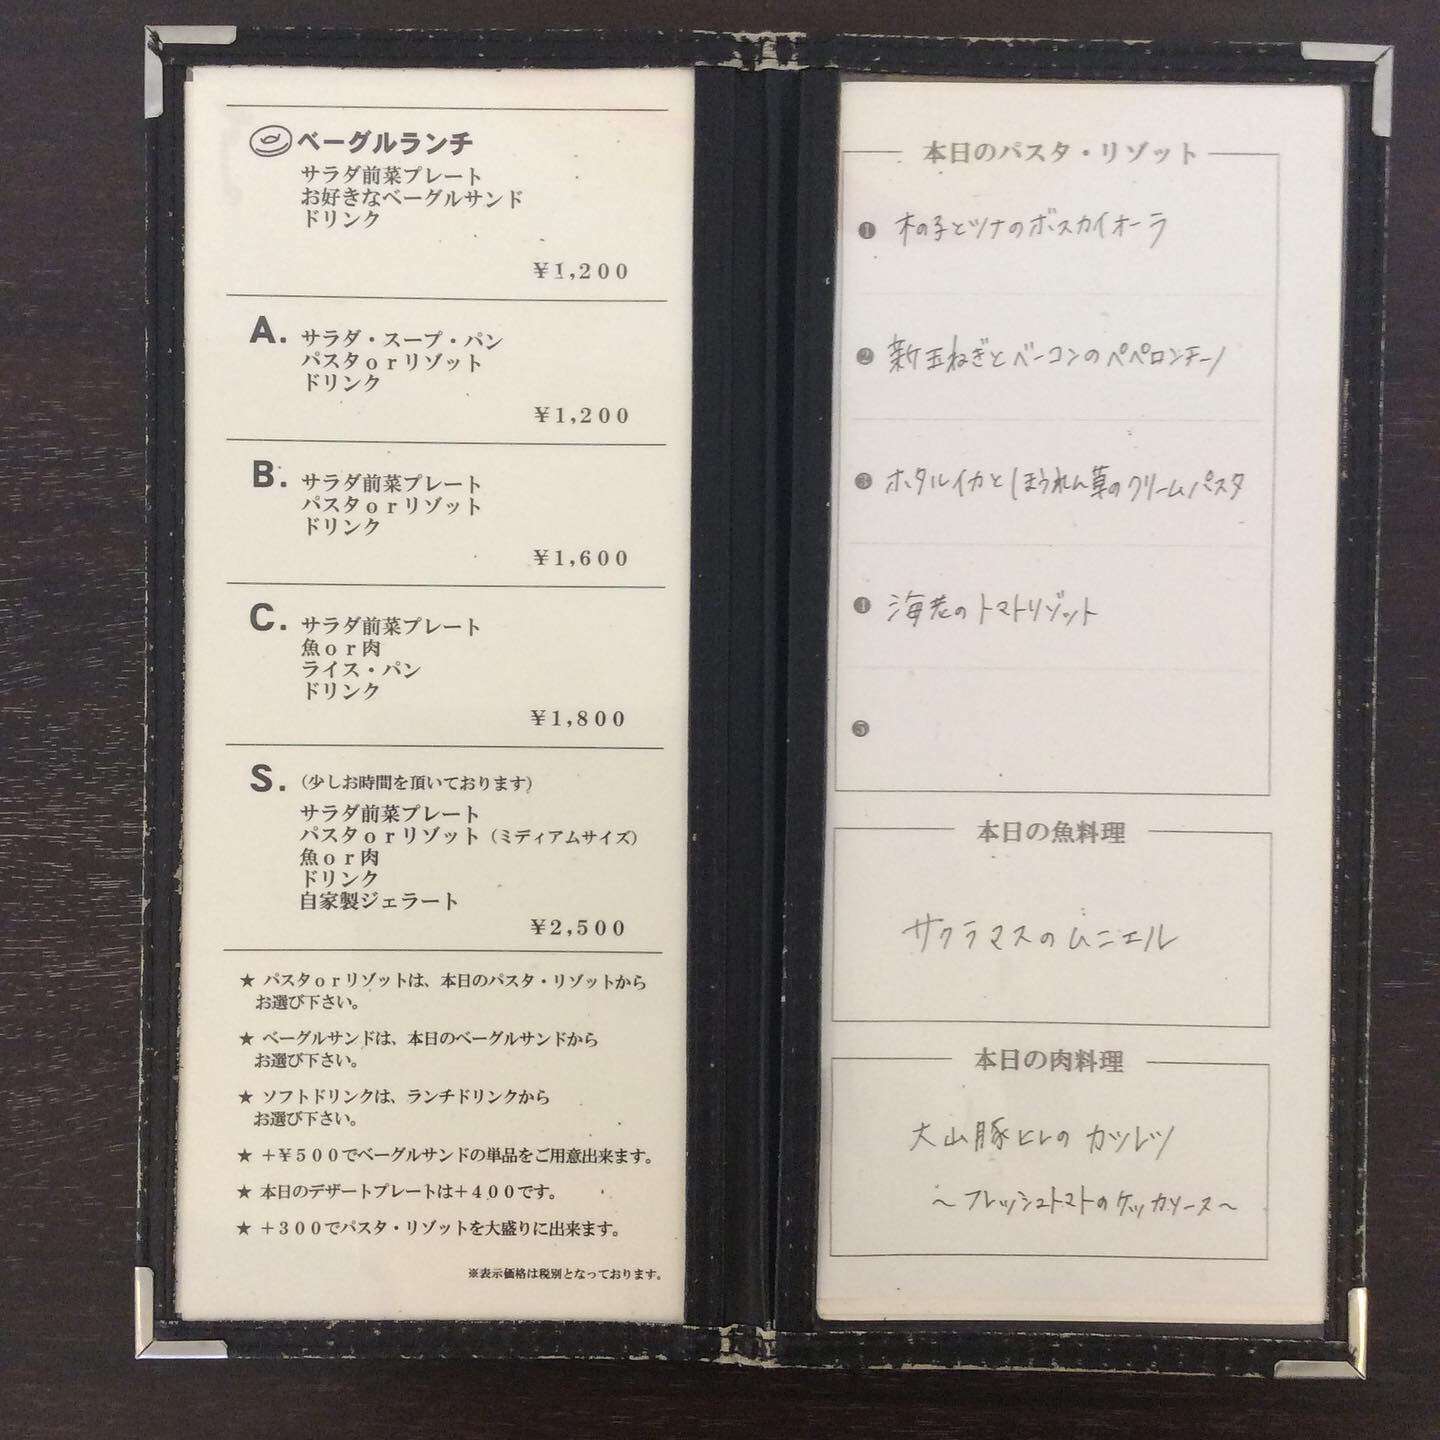 ベーグルランチ
サラダ前菜プレート
お好きなベーグルサンド
ドリンク
¥1,200
A. サラダ・スープ・パン
パスタorリゾット
ドリンク
¥1,200
B. サラダ前菜プレート
パスタorリゾット
ドリンク
¥1,600
C. サラダ前菜プレート
魚or肉
ライス・パン
ドリンク
¥1,800
S.（少しお時間を頂いております）
サラダ前菜プレート
パスタorリゾット（ミディアムサイズ）
魚or肉
ドリンク
自家製ジェラート
¥2,500
★ パスタorリゾットは、本日のパスタ・リゾットから
お選び下さい。
★ ベーグルサンドは、本日のベーグルサンドから
お選び下さい。
★ ソフトドリンクは、ランチドリンクから
お選び下さい。
★ +¥500でベーグルサンドの単品をご用意出来ます。
★ 本日のデザートプレートは+400です。
★ +300でパスタ・リゾットを大盛りに出来ます。
※表示価格は税別となっております。
本日のパスタ・リゾット
❶ 木の子とツナのボスカイオーラ
❷ 新玉ねぎとベーコンのペペロンチーノ
❸ ホタルイカとほうれん草のクリームパスタ
❹ 海老のトマトリゾット
❺
本日の魚料理
サクラマスのムニエル
本日の肉料理
大山豚ヒレのカツレツ
～フレッシュトマトのケッカソース～